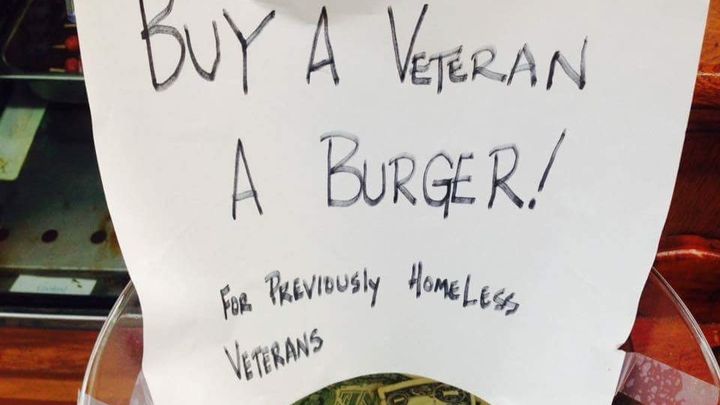 BUY A VETERAN
A BURGER!
FOR PREVIOUSLY HOMELESS
VETERANS